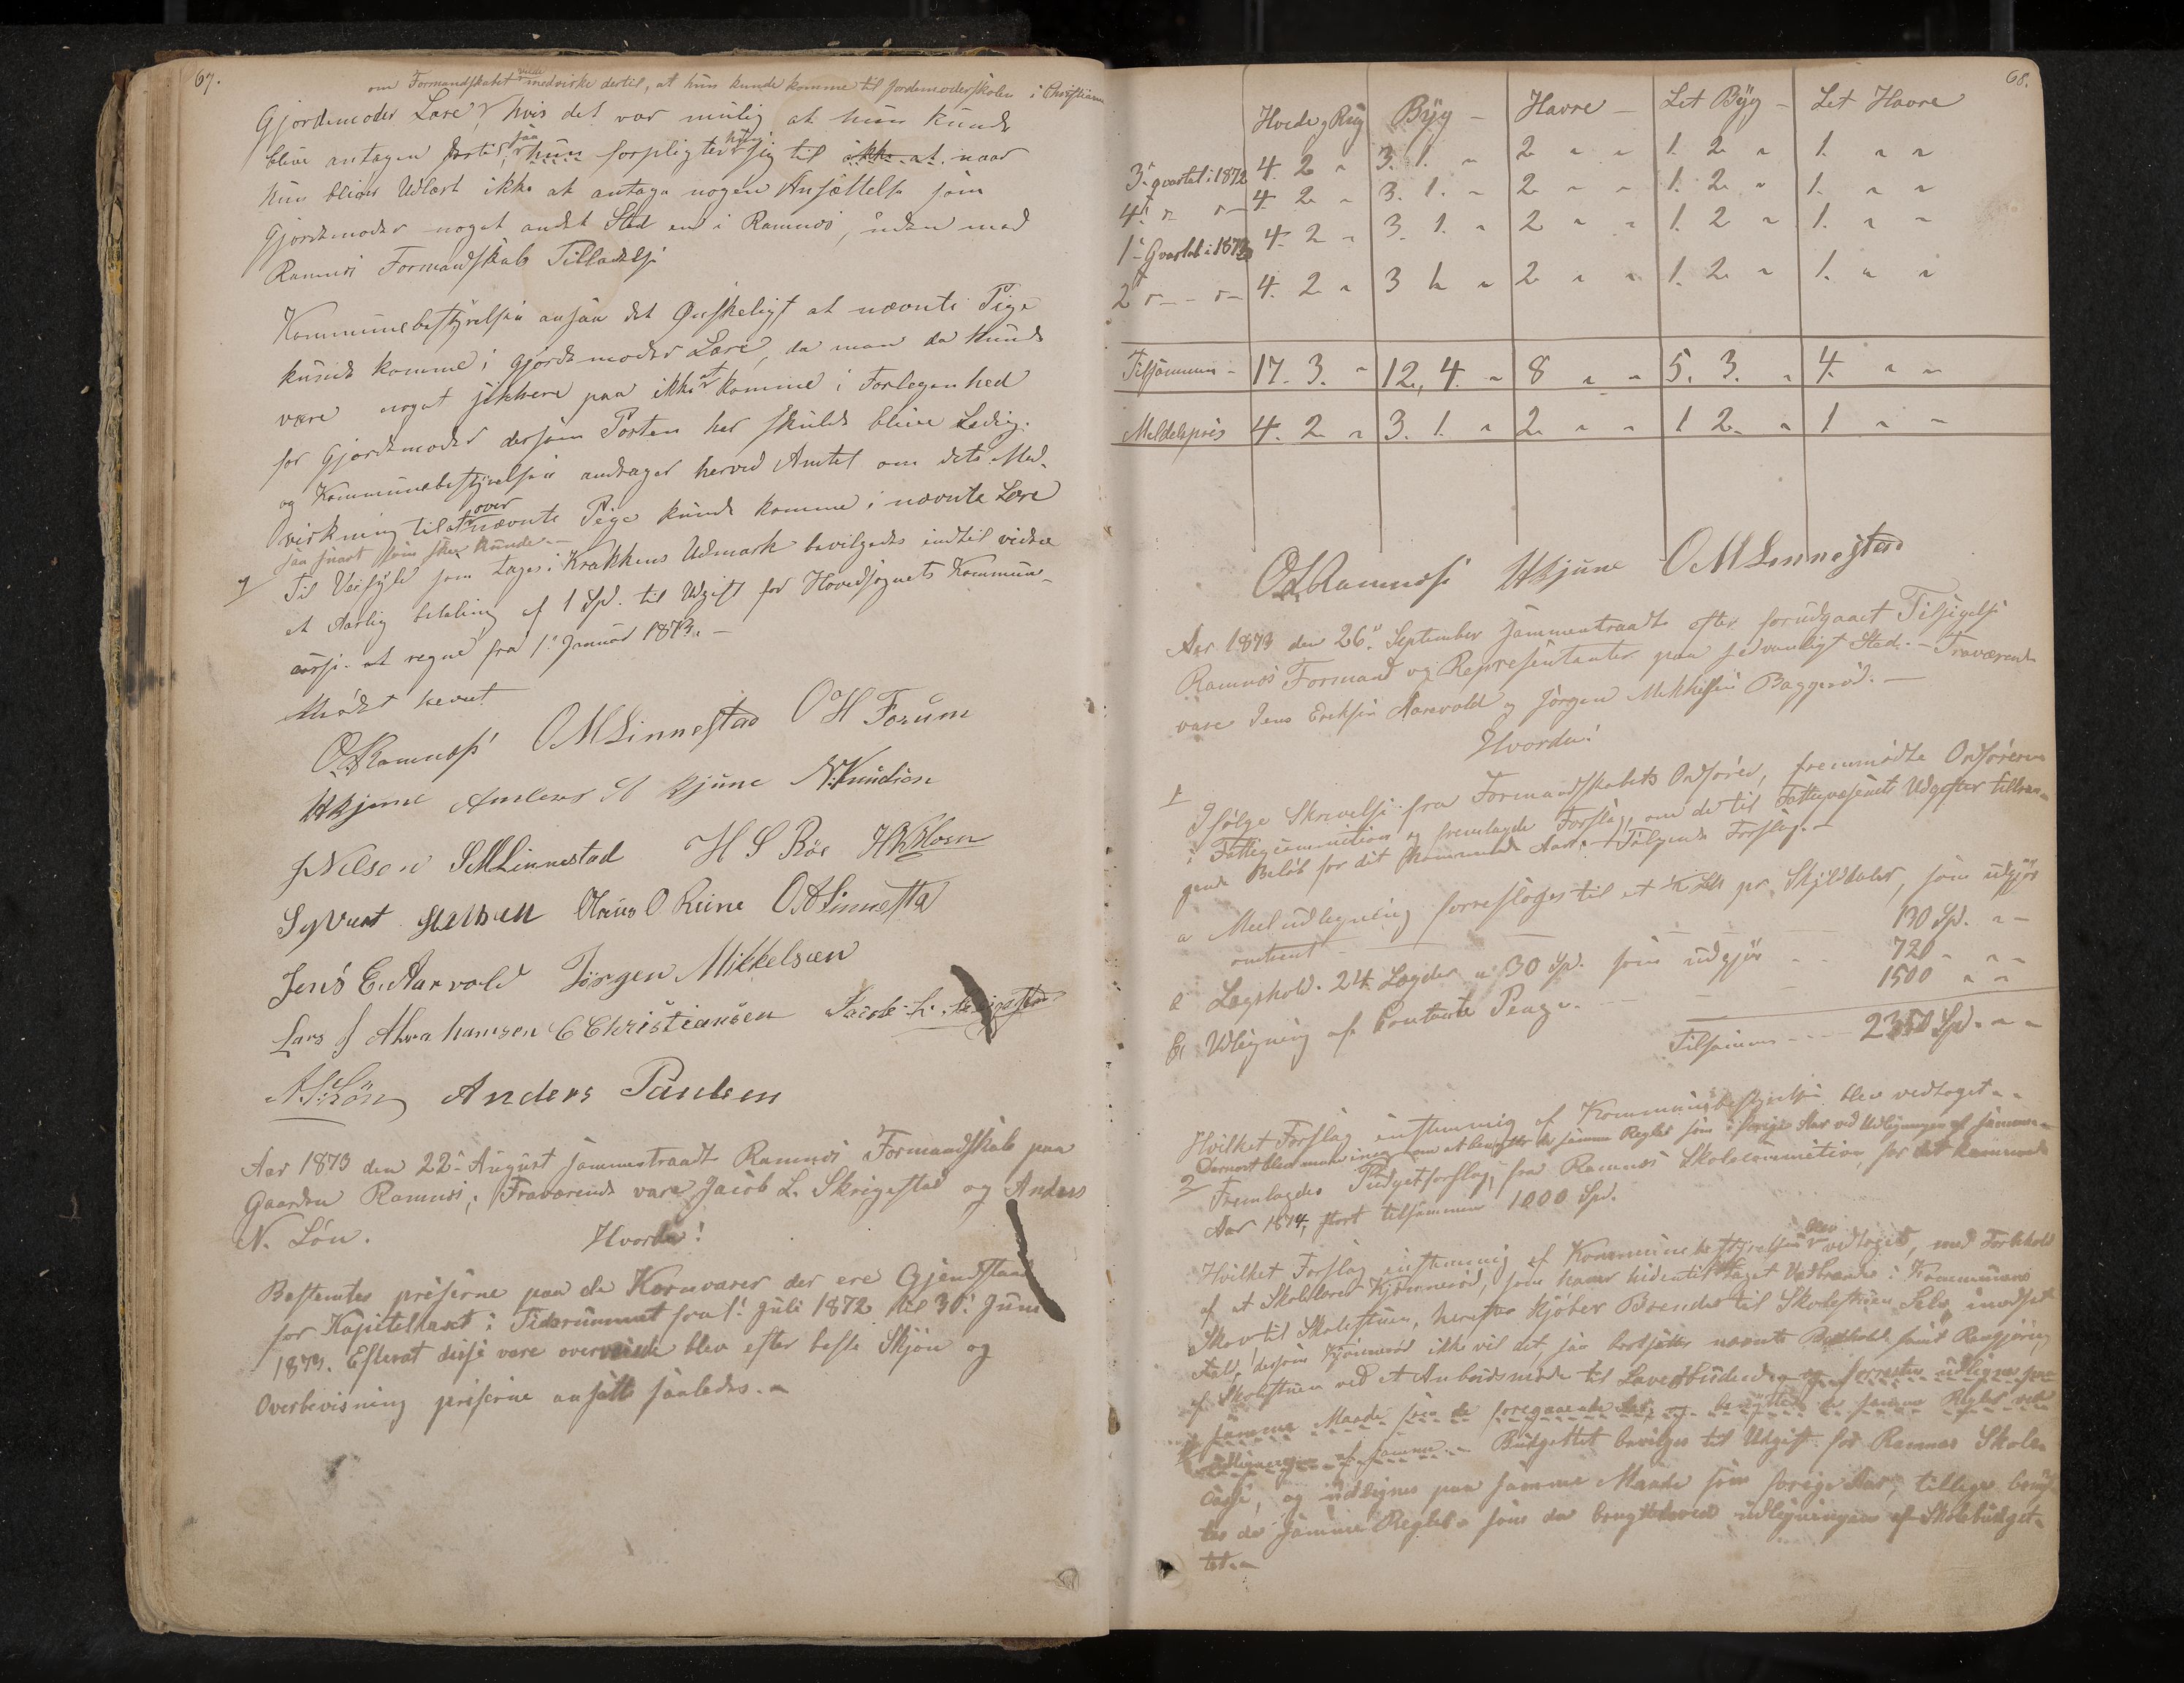 67.
om Formandskabet vilde medvirke dertil, at hun kunde komme til Jordemoderskolen i Christiania
Gjordemoder Lære, hvis det var mulig at hun kunde
blive antagen dertil, saa hun forpligter sig til ikke at naar
hun bliver Udlært ikke at antage nogen Ansættelse som
Gjordemoder noget andet Sted end i Ramnæs, uden med
Ramnæs Formandskabs Tilladelse
Kommunebestyrelsen ansaa det Ønskeligt at nævnte Pige
kunde komme i Gjordemoder Lære, da man da kunde
være noget sikkere paa ikke at komme i Forlegenhed
for Gjordemoder dersom Posten her skulde blive Ledig.
og Kommunebestyrelsen andrager herved Amtet om dets Med-
virkning til at over nævnte Pige kunde komme i nævnte Lære
saa snart som skee kunde.
7 Til Veifyld som tages i Krakkens Udmark bevilgedes indtil videre
et Aarlig betaling af 1 Spd. til Udgift for Hovedsognets Kommun-
casse at regne fra 1. Januar 1873.
Mødet hævet
OARamnæs OMLinnestad OH Forum
HKjune Anders H Kjune NKnudsen
JNilsen SMLinnestad H S Röe
Syvert Hansen Hans O Ruine OALinnestad
Jens E. Aarvold Jörgen Mikkelsen
Lars J Abrahamsen CChristiansen Jacob L. Skrigestad
N. Lön Anders Paulsen
Aar 1873 den 22. August sammentraadte Ramnæs Formandskab paa
Gaarden Ramnæs; Fraværende vare Jacob L. Skrigestad og Anders
N. Lön. Hvorda!
Bestemtes priserne paa de Kornvarer der ere Gjendstand
for Kapiteltaxt i Tidsrummet fra 1. Juli 1872 til 30. Juni
1873. Efterat disse vare overveiede blev efter beste Skjøn og
Overbevisning priserne ansatte saaledes.
68.
Hvede og Rug Byg - Havre - Let Byg - Let Havre
3. Qvartal i 1872 4. 2 " 3. 1. " 2 " " 1. 2 " 1. " "
4. " " 4. 2 " 3. 1. " 2 " " 1. 2 " 1. " "
1. Qvartal i 1873 4. 2 " 3. 1. " 2 " " 1. 2 " 1. " "
2 " " 4. 2 " 3 1. " 2 " " 1. 2 " 1. " "
Tilsammen - 17. 3. " 12. 4. " 8 " " 5. 3. " 4. " "
Middelpris 4. 2 " 3. 1. " 2 " " 1 2 " 1 " "
OARamnæs HKjune OMLinnestad
Aar 1873 den 26. September sammentraadte efter forudgaaet Tilsigelse
Ramnæs Formand og Repræsentanter paa sedvanligt Sted. - Fraværende
vare Jens Eriksen Aarvold og Jørgen Mikkelsen Baggerød. -
Hvorda!
1 Ifølge Skrivelse fra Formandskabets Ordfører, fremmødte Ordføreren
i Fattigcommition og fremlagde Forslag, om de til Fattigvæsenets Udgifter tiltræn-
gende Beløb for det kommende Aar. Følgende Forslag. -
a Meludlegning foresloges til et pr Skylddaler, som udgjør
omtrent - 130 Spd. " -
Lægshold. 24 Lægder a 30 Spd. som udgjør - 720 " "
Udligning af Contante Penge. - 1500 " "
Tilsammen - - - 2350 Spd. " "
Hvilket Forslag enstemmig af Kommunebestyrelsen blev vedtaget. -
Dernæst blev man enig om at benytte de samme Regler som i forige Aar ved Udligningen af samme. -
2 Fremlagdes Budgetforslag, fra Ramnæs Skolecommition, for det kommende
Aar 1874, stort tilsammen 1000 Spd.
Hvilket Forslag enstemmig af Kommunebestyrelsen blev vedtaget, med Forbehold
af at Skolelærer Kjønnerød, som haver hidentil taget Vedbrænde i Kommunens
Skov til Skolestuen, herefter kjøber Brænde til Skolestuen Selv, modsat
Fald, dersom Kjønnerød ikke vil det, saa bortsættes nævnte samt Rengjøring
af Skolestuen ved et Anbudsmøde til Lavestbudende, og forresten udlignes paa
samme Maade som de foregaaende Aar, og benyttes de samme Regler ved
Udligningen af samme. - Budgettet bevilges til Udgift for Ramnæs Skole-
casse, og udlignes paa samme Maade som forige Aar, tillige benyt-
tes de samme Regler som da benyttedes ved udligningen af Skolebudget-
tet. -